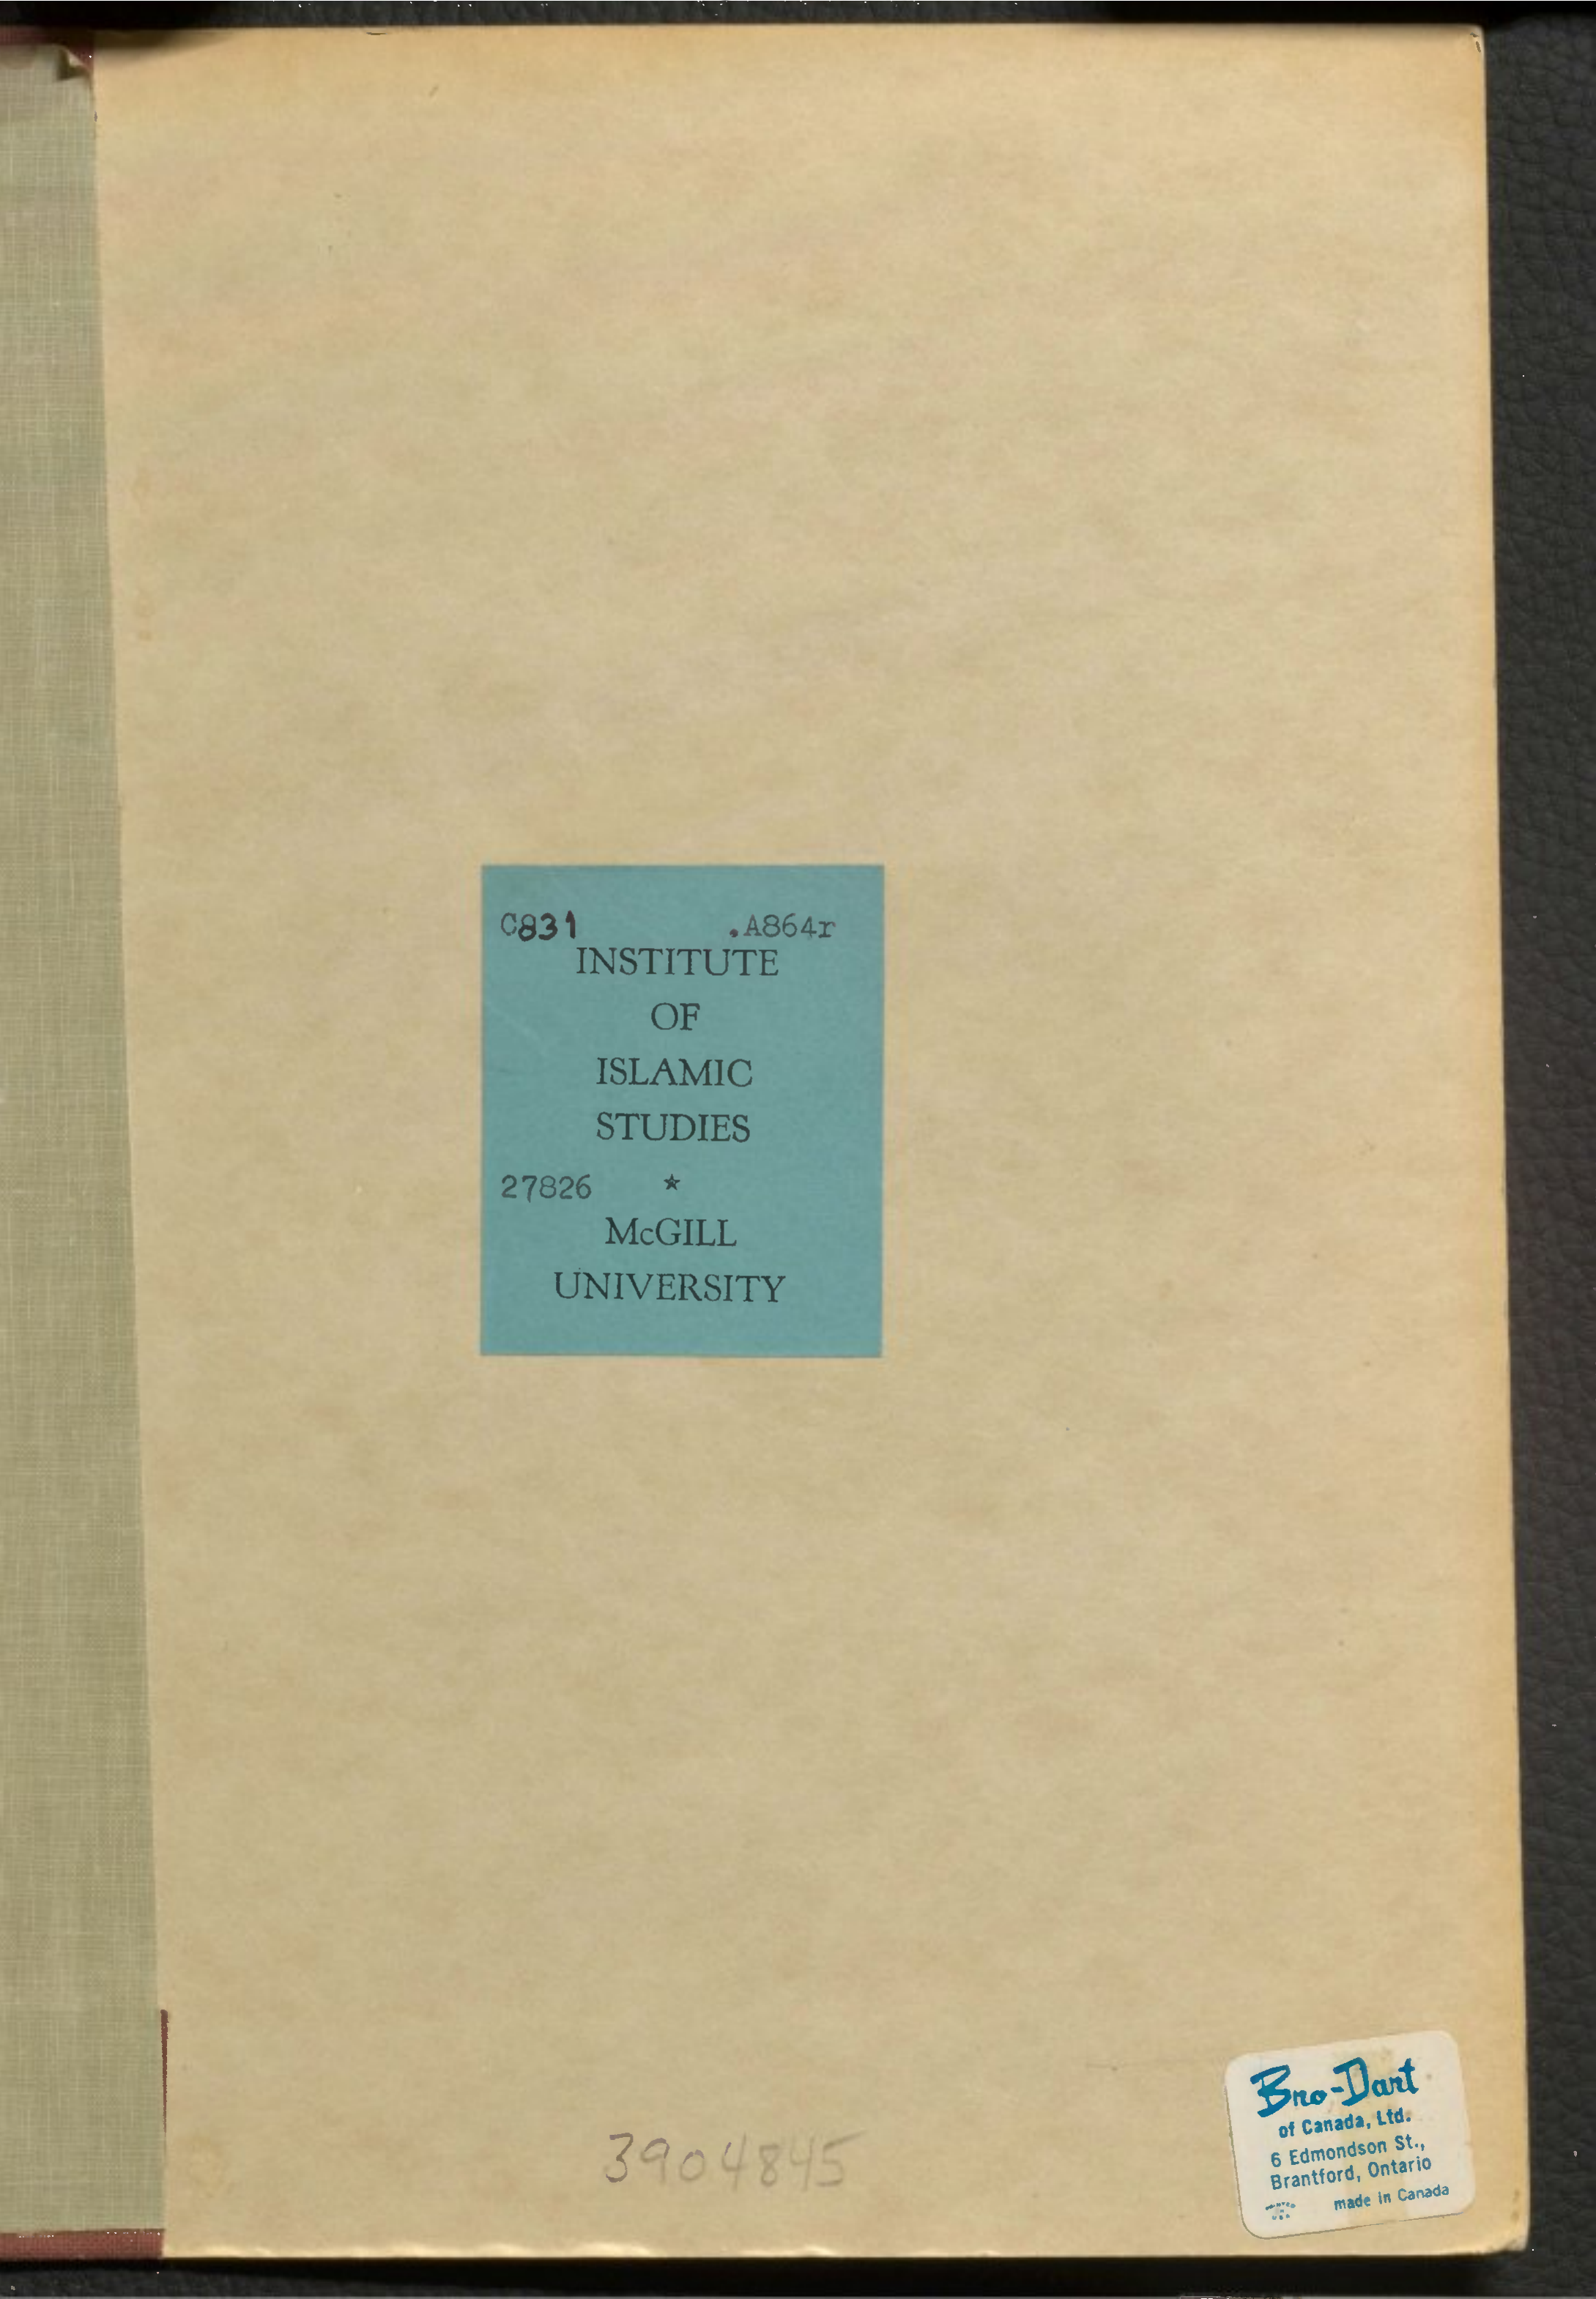 C831 .A864r
INSTITUTE
OF
ISLAMIC
STUDIES
27826 ★
McGILL
UNIVERSITY
3904845
Bro-Dart
of Canada, Ltd.
6 Edmondson St.,
Brantford, Ontario
made in Canada